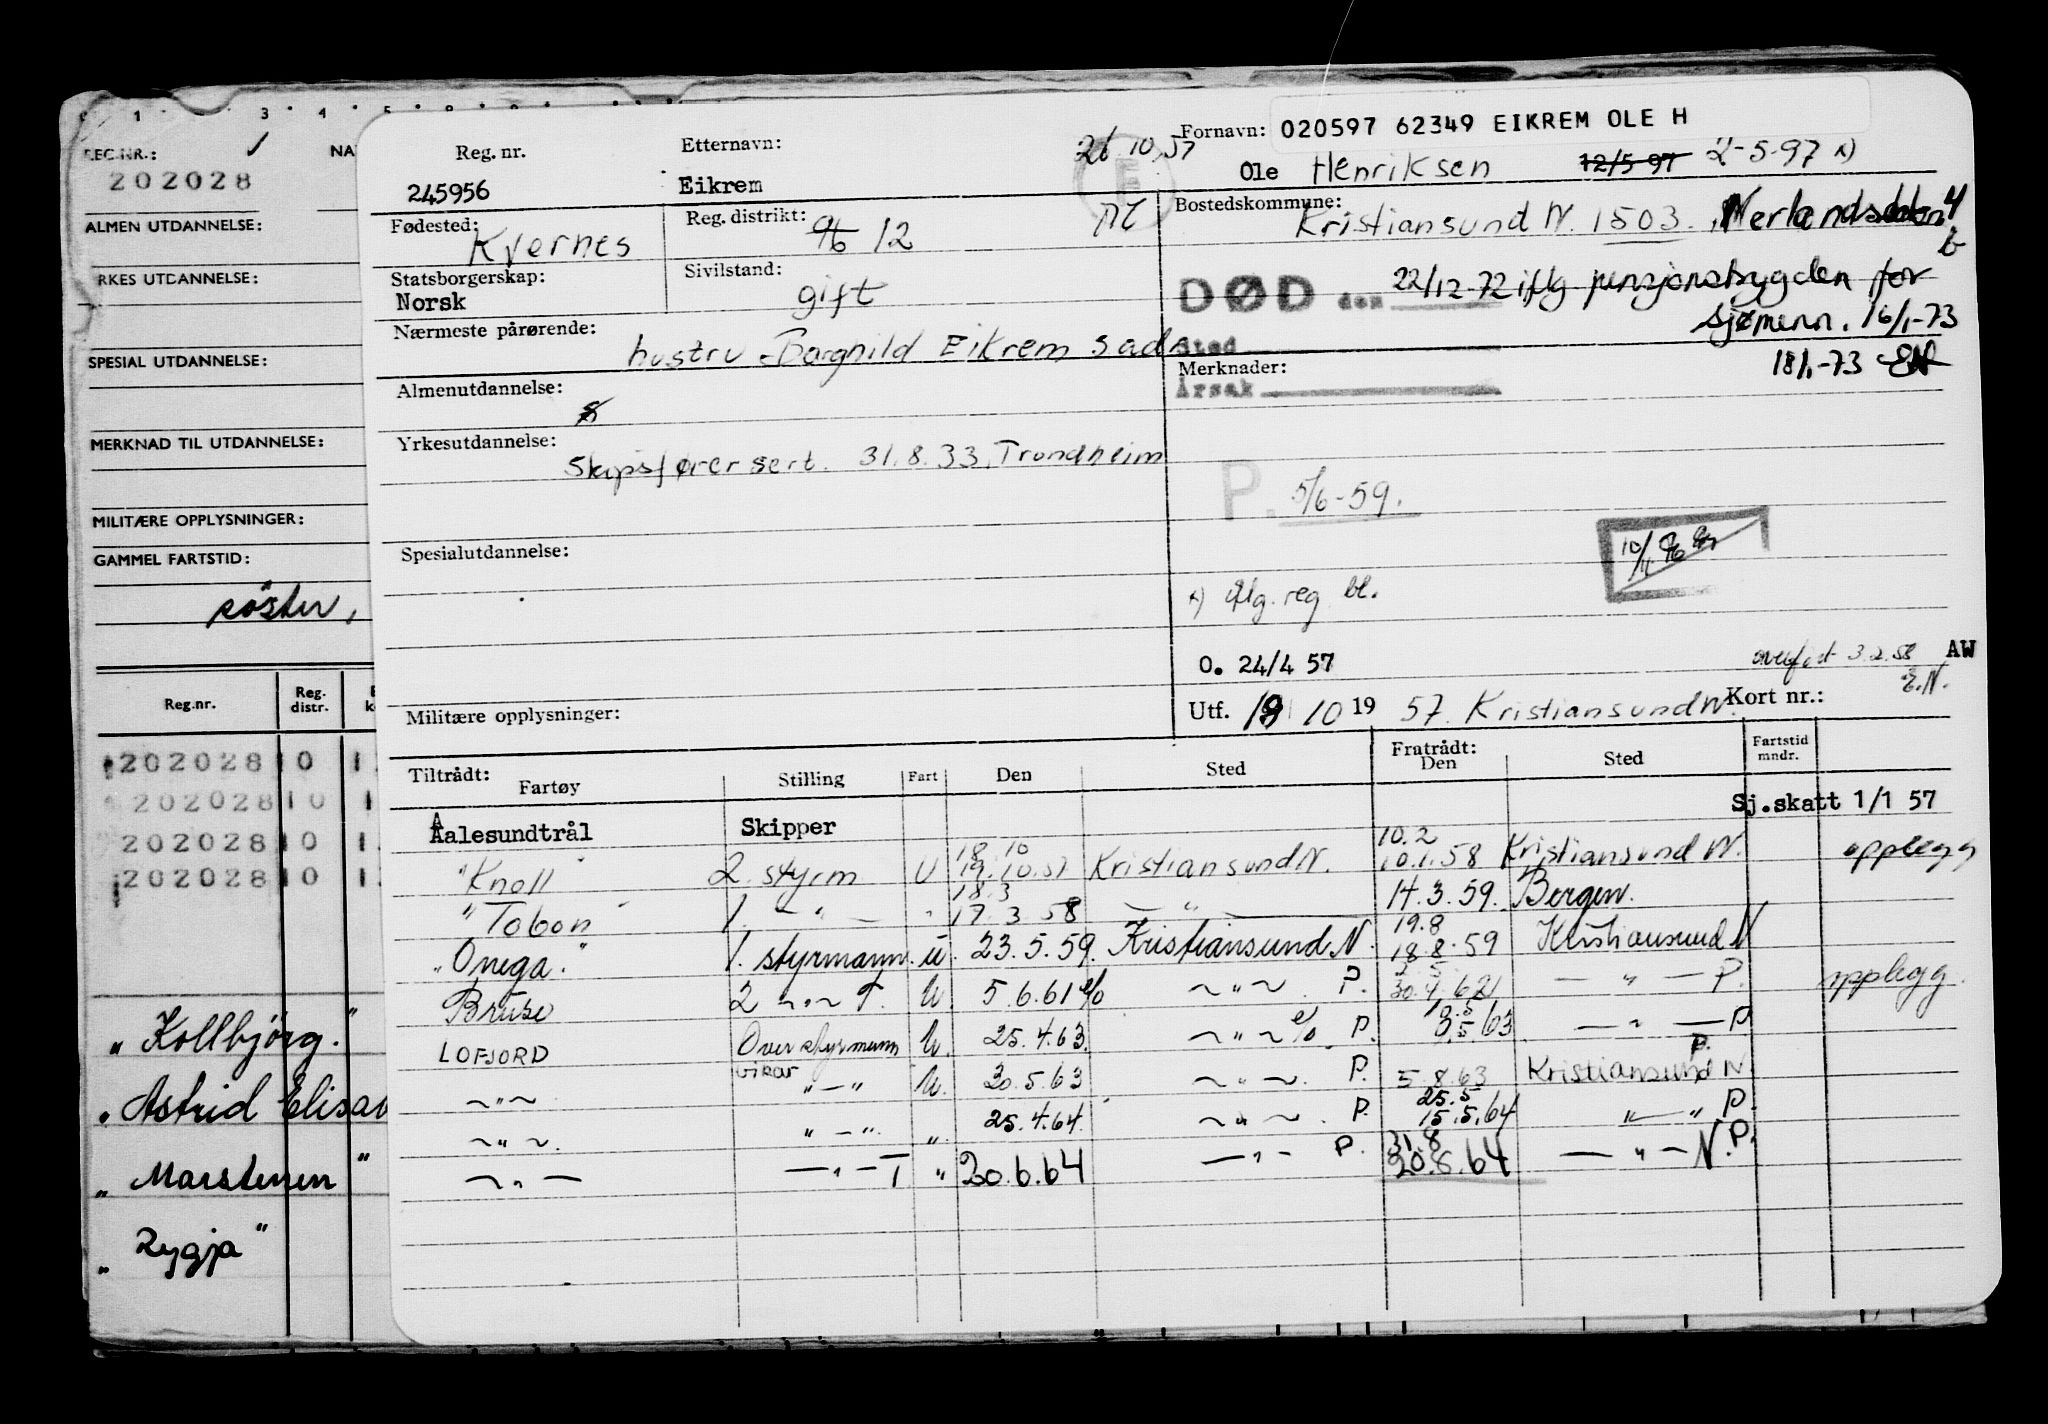 1 3 4 5
REG.NR.: NA
202028
ALMEN UTDANNELSE:
RKES UTDANNELSE:
SPESIAL UTDANNELSE:
MERKNAD TIL UTDANNELSE:
MILITÆRE OPPLYSNINGER:
GAMMEL FARTSTID:
söster,
Reg.nr. Reg. distr.
202028 10 1
202028 10 1
202028 10 1
202028 10 1
"Kollbjörg."
"Astrid Elisab
"Marstenen"
"Rygja"
020597 62349 EIKREM OLE H
Reg. nr. Etternavn: 26.10.57 Fornavn:
245956 Eikrem E Ole Henriksen 12/5-97 2-5-97 x)
Fødested: Kvernes Reg. distrikt: 12 Bostedskommune: Kristiansund N. 1503.
Statsborgerskap: Norsk Sivilstand: gift
DØD den 22/12-72 iflg pensjonstrygden for
sjømenn. 16/1-73
Nærmeste pårørende: hustru Borghild Eikrem sad
Sted
Merknader: 18/1-73
Årsak
Almenutdannelse:
Yrkesutdannelse: Skipsførersert. 31.8.33. Trondheim
P. 5/6-59.
Spesialutdannelse:
x) iflg. reg bl.
O. 24/4 57 overført 3.2.58 AW
E.N.
Militære opplysninger: Utf. 19/10 19 57. Kristiansund N. Kort nr.:
Tiltrådt: Fartøy Stilling Fart Den Sted Fratrådt: Den Sted Fartstid mndr.
Sj.skatt 1/1 57
Aalesundtrål Skipper
18 10 10.2
"Knoll" 2. styrm U 19.10.57 Kristiansund N. 10.1.58 Kristiansund N. opplegg
18.3
"Tobon" 1. — " — " 17.3.58 — " — 14.3.59. Bergen.
19.8
"Onega." 1. styrmann. u. 23.5.59. Kristiansund N. 18.8.59 Kristiansund N
Bruse 2 ~"~ T. U. 5.6.61 ~"~. P. — " — P. opplegg.
LOFJORD Overstyrmann U. 25.4.63. ~"~ P. 5.63 — " — P
vikar
~"~ "—" U. 30.5.63 ~"~. P. 5.8.63 Kristiansund N P.
25.5
~"~. "—". " 25.4.64. ~"~. P. 15.5.64 "—" P.
31.8
—"— —"— T " 20.6.64 —"— P. 20.8.64 — " — N. P.